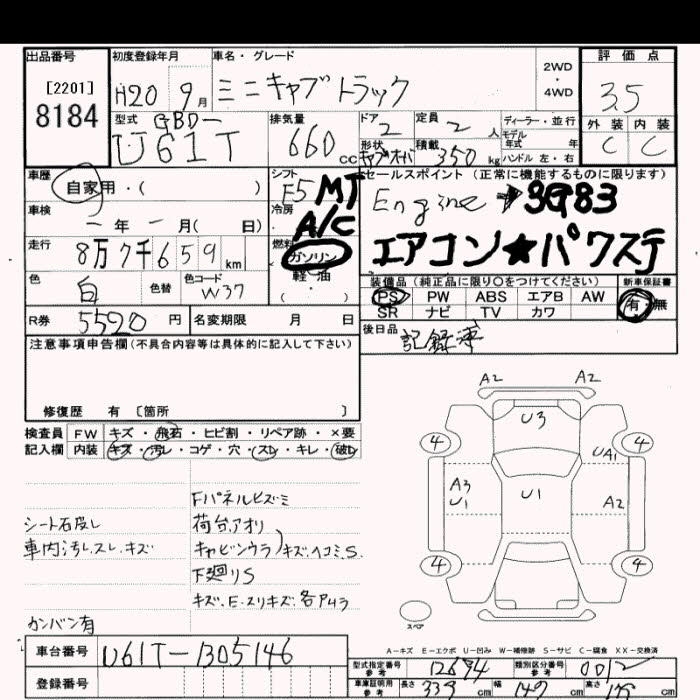 出品番号
[2201]
8184
初度登録年月
H20 9月
車名・グレード
ミニキャブトラック
2WD
・
4WD
評価点
3.5
型式
GBD-
U61T
排気量
660cc
ドア
2
定員
2人
形状
キャブオーバ
積載
350kg
ディーラー・並行
モデル年式 年
ハンドル 左・右
外装 内装
C C
車歴
自家用・( )
シフト
F5 MT
セールスポイント (正常に機能するものに限ります)
Engine → 3G83
エアコン★パワステ
車検
- 年 - 月( 日)
冷房
A/C
走行
8万7千659km
燃料
ガソリン
軽・油
( ・ )
色
白
色替
色コード
W37
装備品 (純正品に限り○をつけてください)
PS PW ABS エアB AW
SR ナビ TV カワ
新車保証書
有・無
R券 5520円
名変期限 月 日
後日品
記録簿
注意事項申告欄(不具合内容等は具体的に記入して下さい)
修復歴 有 〔箇所 〕
検査員 FW キズ・飛石・ヒビ割・リペア跡・×要
記入欄 内装 キズ・汚レ・コゲ・穴・スレ・キレ・破レ
Fパネルヒズミ
シート石皮し
荷台、アオリ
車内汚し、スレ、キズ
キャビンウラ)キズ、ヘコミ、S.
下廻りS
キズ、E-スリキズ、各アムラ
カンバン有
A2 A2
U3
4 4
UA1
A3
U1
U1
A2
4 4
スペア
A-キズ E-エクボ U-凹み W-補修跡 S-サビ C-腐食 XX-交換済
車台番号 U61T-1305146
登録番号
型式指定番号
参考
12694
類別区分番号
参考
0012
車庫証明用
参考
長さ 339cm 幅 147cm 高さ cm